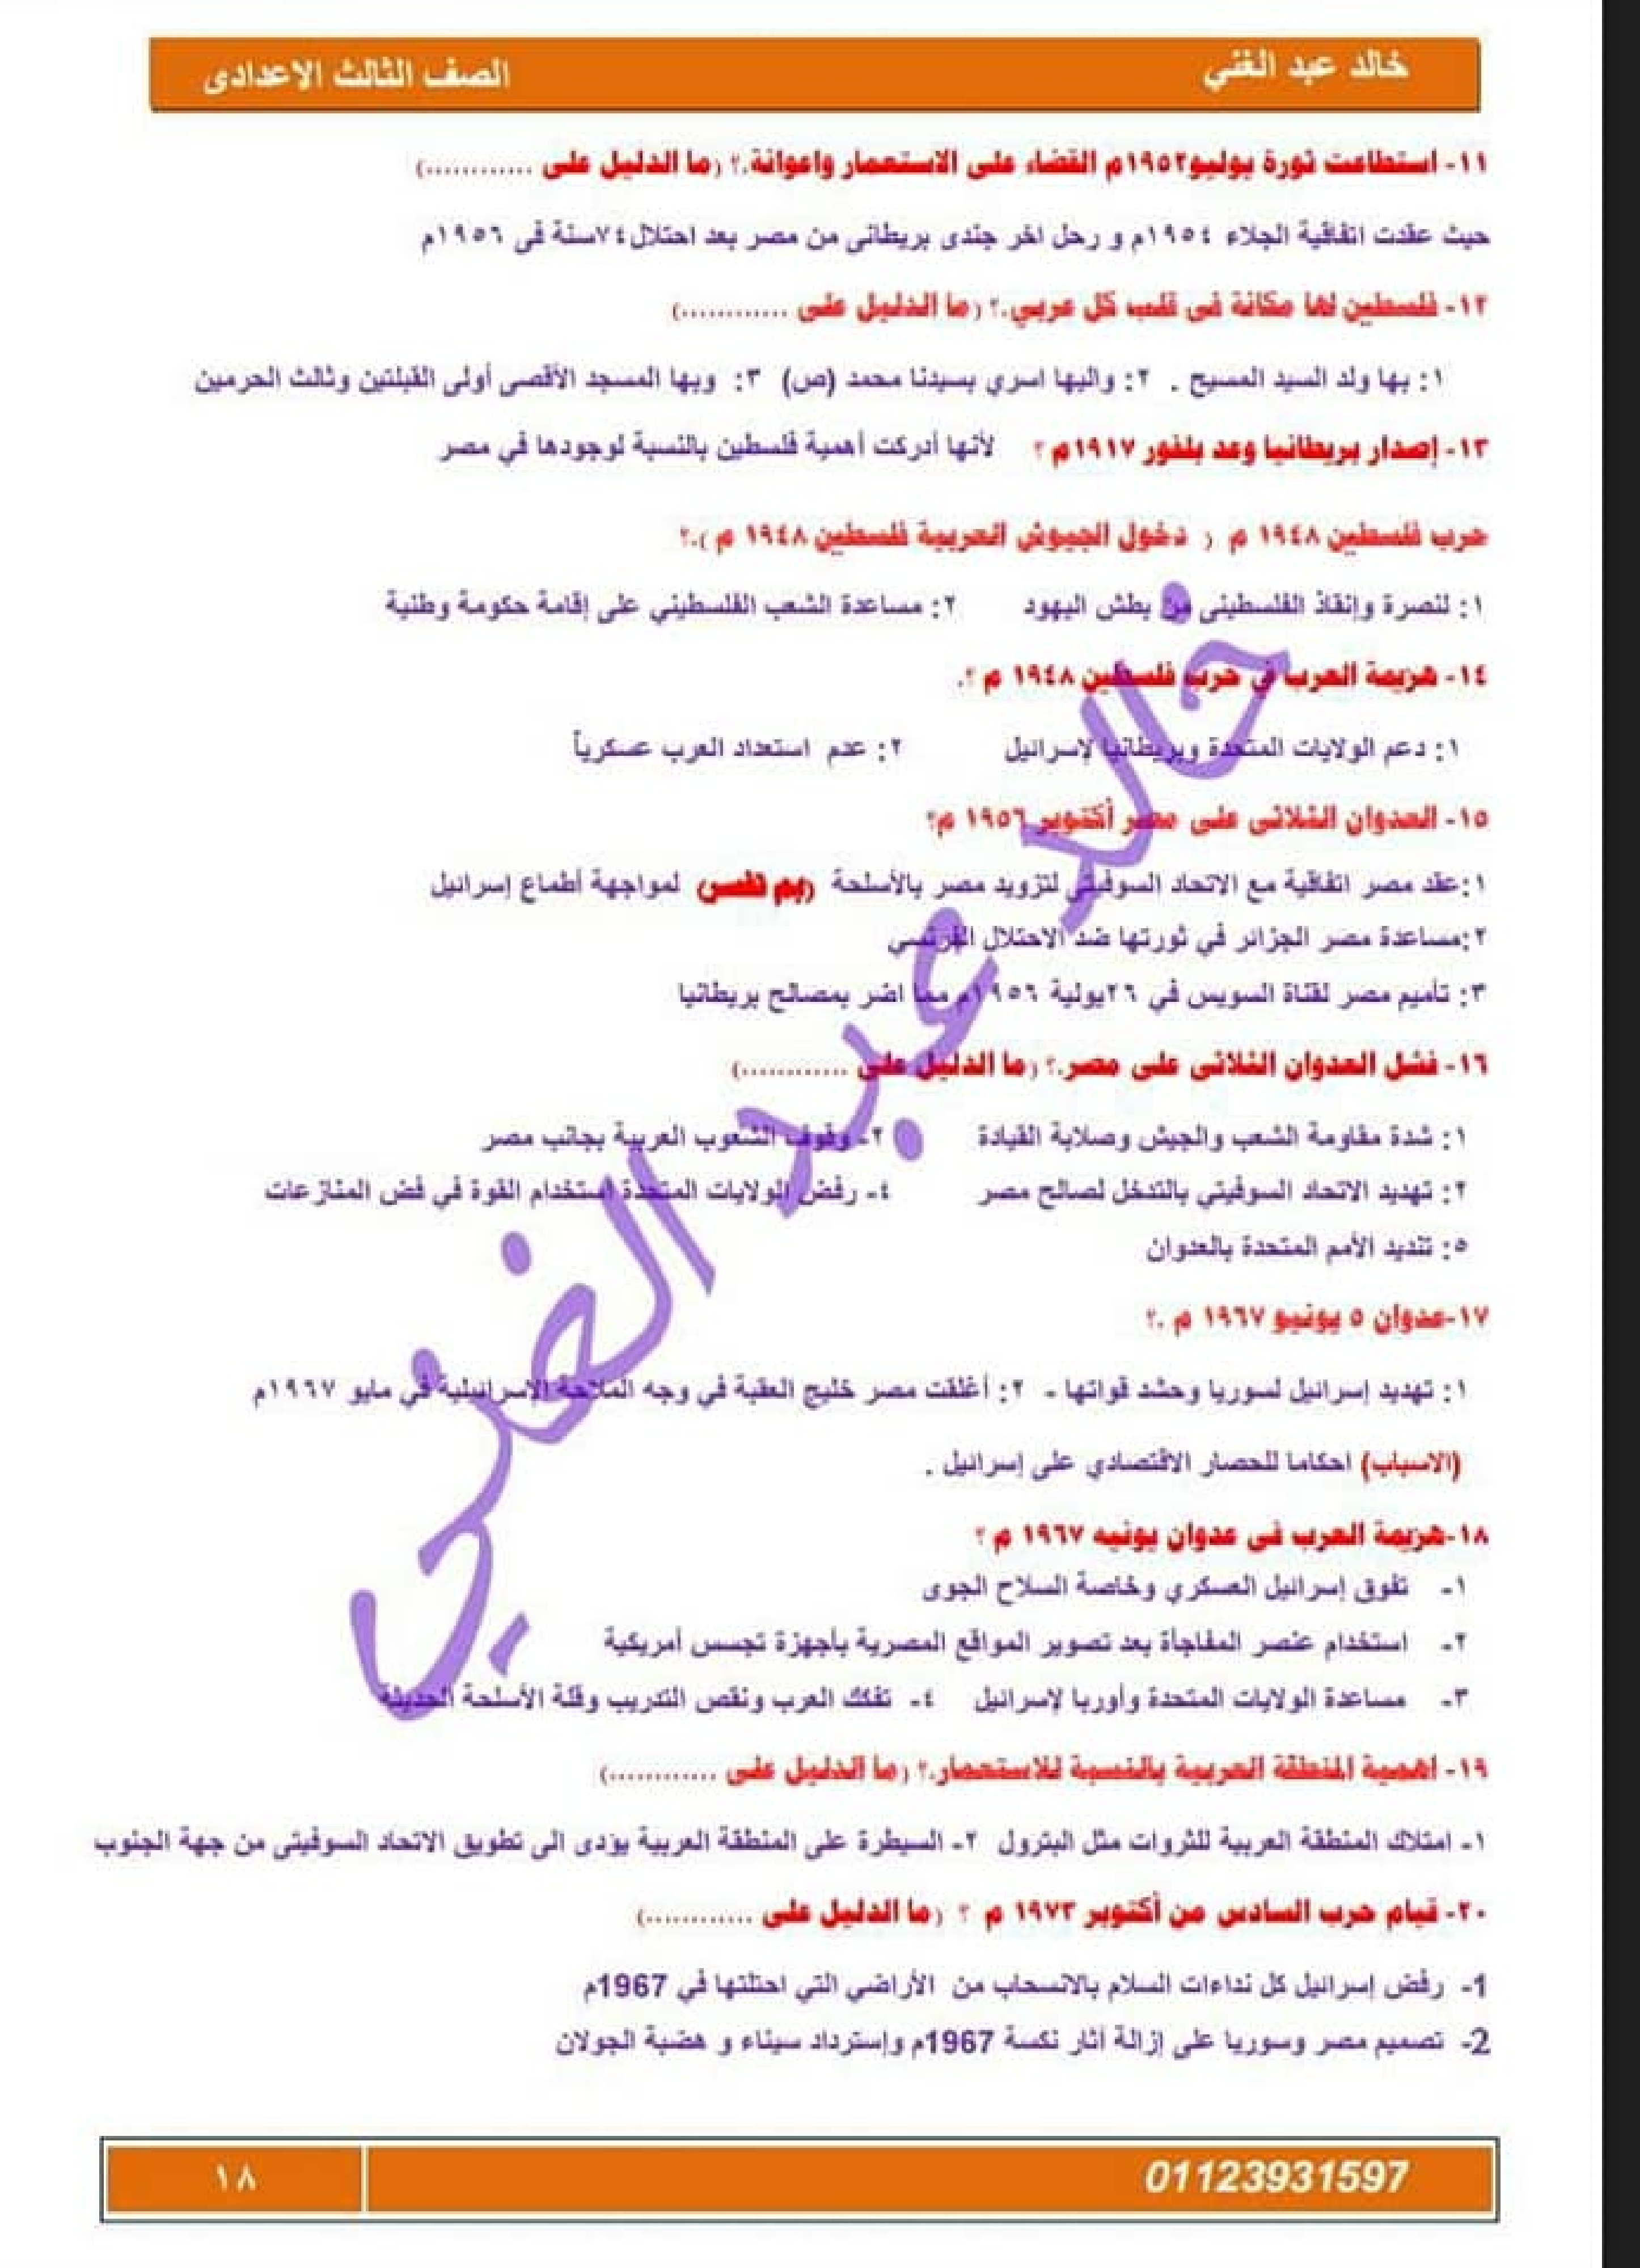 خالد عبد الغني
الصف الثالث الاعدادى
١١- استطاعت ثورة يوليو١٩٥٢م القضاء على الاستعمار واعوانة.؟ (ما الدليل على ............)
حيث عقدت اتفاقية الجلاء ١٩٥٤م و رحل اخر جندى بريطانى من مصر بعد احتلال٧٤سنة فى ١٩٥٦م
١٢- فلسطين لها مكانة فى قلب كل عربي.؟ (ما الدليل على ............)
١: بها ولد السيد المسيح . ٢: واليها اسري بسيدنا محمد (ص) ٣: وبها المسجد الأقصى أولى القبلتين وثالث الحرمين
١٣- إصدار بريطانيا وعد بلفور ١٩١٧م ؟ لأنها أدركت أهمية فلسطين بالنسبة لوجودها في مصر
حرب فلسطين ١٩٤٨ م ( دخول الجيوش العربية فلسطين ١٩٤٨ م ).؟
١: لنصرة وإنقاذ الفلسطينى من بطش اليهود ٢: مساعدة الشعب الفلسطيني على إقامة حكومة وطنية
١٤- هزيمة العرب فى حرب فلسطين ١٩٤٨ م ؟.
١: دعم الولايات المتحدة وبريطانيا لإسرائيل ٢: عدم استعداد العرب عسكرياً
١٥- العدوان الثلاثى على مصر أكتوبر ١٩٥٦ م؟
١:عقد مصر اتفاقية مع الاتحاد السوفيتى لتزويد مصر بالأسلحة (بم تفسر) لمواجهة أطماع إسرائيل
٢:مساعدة مصر الجزائر في ثورتها ضد الاحتلال الفرنسي
٣: تأميم مصر لقناة السويس في ٢٦يولية ١٩٥٦م مما اضر بمصالح بريطانيا
١٦- فشل العدوان الثلاثى على مصر.؟ (ما الدليل على ............)
١: شدة مقاومة الشعب والجيش وصلابة القيادة ٢- وقوف الشعوب العربية بجانب مصر
٢: تهديد الاتحاد السوفيتي بالتدخل لصالح مصر ٤- رفض الولايات المتحدة استخدام القوة في فض المنازعات
٥: تنديد الأمم المتحدة بالعدوان
١٧-عدوان ٥ يونيو ١٩٦٧ م .؟
١: تهديد إسرائيل لسوريا وحشد قواتها - ٢: أغلقت مصر خليج العقبة في وجه الملاحة الإسرائيلية في مايو ١٩٦٧م
(الاسباب) احكاما للحصار الاقتصادي على إسرائيل .
١٨-هزيمة العرب فى عدوان يونيه ١٩٦٧ م ؟
١- تفوق إسرائيل العسكري وخاصة السلاح الجوى
٢- استخدام عنصر المفاجأة بعد تصوير المواقع المصرية بأجهزة تجسس أمريكية
٣- مساعدة الولايات المتحدة وأوربا لإسرائيل ٤- تفكك العرب ونقص التدريب وقلة الأسلحة الحديثة
١٩- اهمية المنطقة العربية بالنسبة للاستعمار.؟ (ما الدليل على ............)
١- امتلاك المنطقة العربية للثروات مثل البترول ٢- السيطرة على المنطقة العربية يؤدى الى تطويق الاتحاد السوفيتى من جهة الجنوب
٢٠- قيام حرب السادس من أكتوبر ١٩٧٣ م ؟ (ما الدليل على ............)
1- رفض إسرائيل كل نداءات السلام بالانسحاب من الأراضي التي احتلتها في 1967م
2- تصميم مصر وسوريا على إزالة أثار نكسة 1967م وإسترداد سيناء و هضبة الجولان
خالد عبد الغني
01123931597
١٨